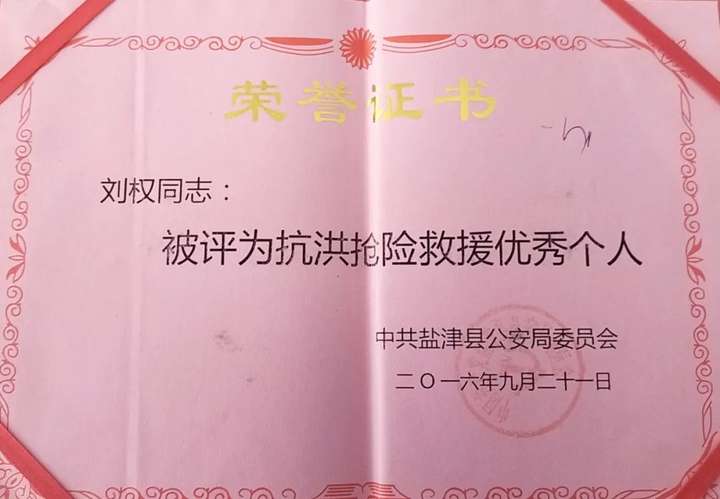 荣誉证书
刘权同志：
被评为抗洪抢险救援优秀个人
中共盐津县公安局委员会
二〇一六年九月二十一日